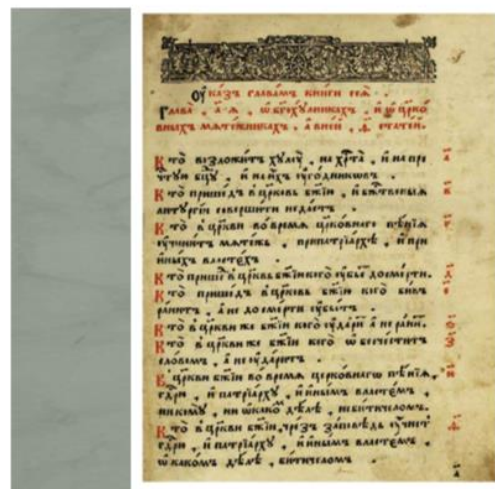 Оу҆ка́зъ глава́мъ кни́ги сеѧ̀ .
Глава̀ , а҃ ѧ , ѡ҆ бг҃охꙋлникахъ , и҆ ѡ҆ цр҃ко
вныхъ мѧте́жникахъ , а҆ вне́й , ѳ҃ стате́й .
Кто̀ возложи́тъ хꙋлꙋ̀ , на хр҃та̀ , и҆ на пре а҃
чⷭ҇тꙋю бцⷣꙋ , и҆ на и҆́хъ ᲂу҆го́дниковъ .
Кто̀ прише́дъ в цр҃ковь бж҃їю , и҆ бж҃твеныѧ в҃
литꙋргі́и соверши́ти неда́стъ .
Кто̀ в цр҃кви во вре́мѧ цр҃ко́внаго пѣ́нїѧ г҃
ᲂу҆чини́тъ мѧте́жь , припатрїа́рхѣ , и҆ при
и҆ны́хъ власте́хъ .
Кто̀ прише́ⷣ в цр҃квь бж҃їю кого̀ ᲂу҆бье́т досме́рти . д҃
Кто̀ прише́дъ в цр҃ковь бж҃їю кого̀ бивъ е҃
ра́нитъ , а҆ не до сме́рти ᲂу҆бье́тъ .
Кто̀ в цр҃кви же бж҃їи кого̀ ᲂу҆да́ритъ а҆ не ра́нитъ . ѕ҃
Кто̀ в цр҃кви же бж҃їи кого̀ ѡ҆бесче́ститъ з҃
сло́вомъ , а҆ не ᲂу҆да́ритъ .
В цр҃кви бж҃їи во вре́мѧ церко́внагѡ пѣ́нїѧ , и҃
гдⷭ҇рю , и҆ патрїа́рхꙋ , и҆ и҆ны́мъ власте́мъ ,
никомꙋ̀ , ни ѡ҆какѡ́мъ дѣ́лѣ , неби́тичело́мъ .
Кто̀ в цр҃кви бж҃їи , чрезъ за́повѣдь ᲂу҆чне́т ѳ҃
гдⷭ҇рю , и҆ патрїа́рхꙋ , и҆ и҆ны́мъ власте́мъ ,
ѡ҆ како́мъ дѣ́лѣ , би́тичело́мъ
а҃